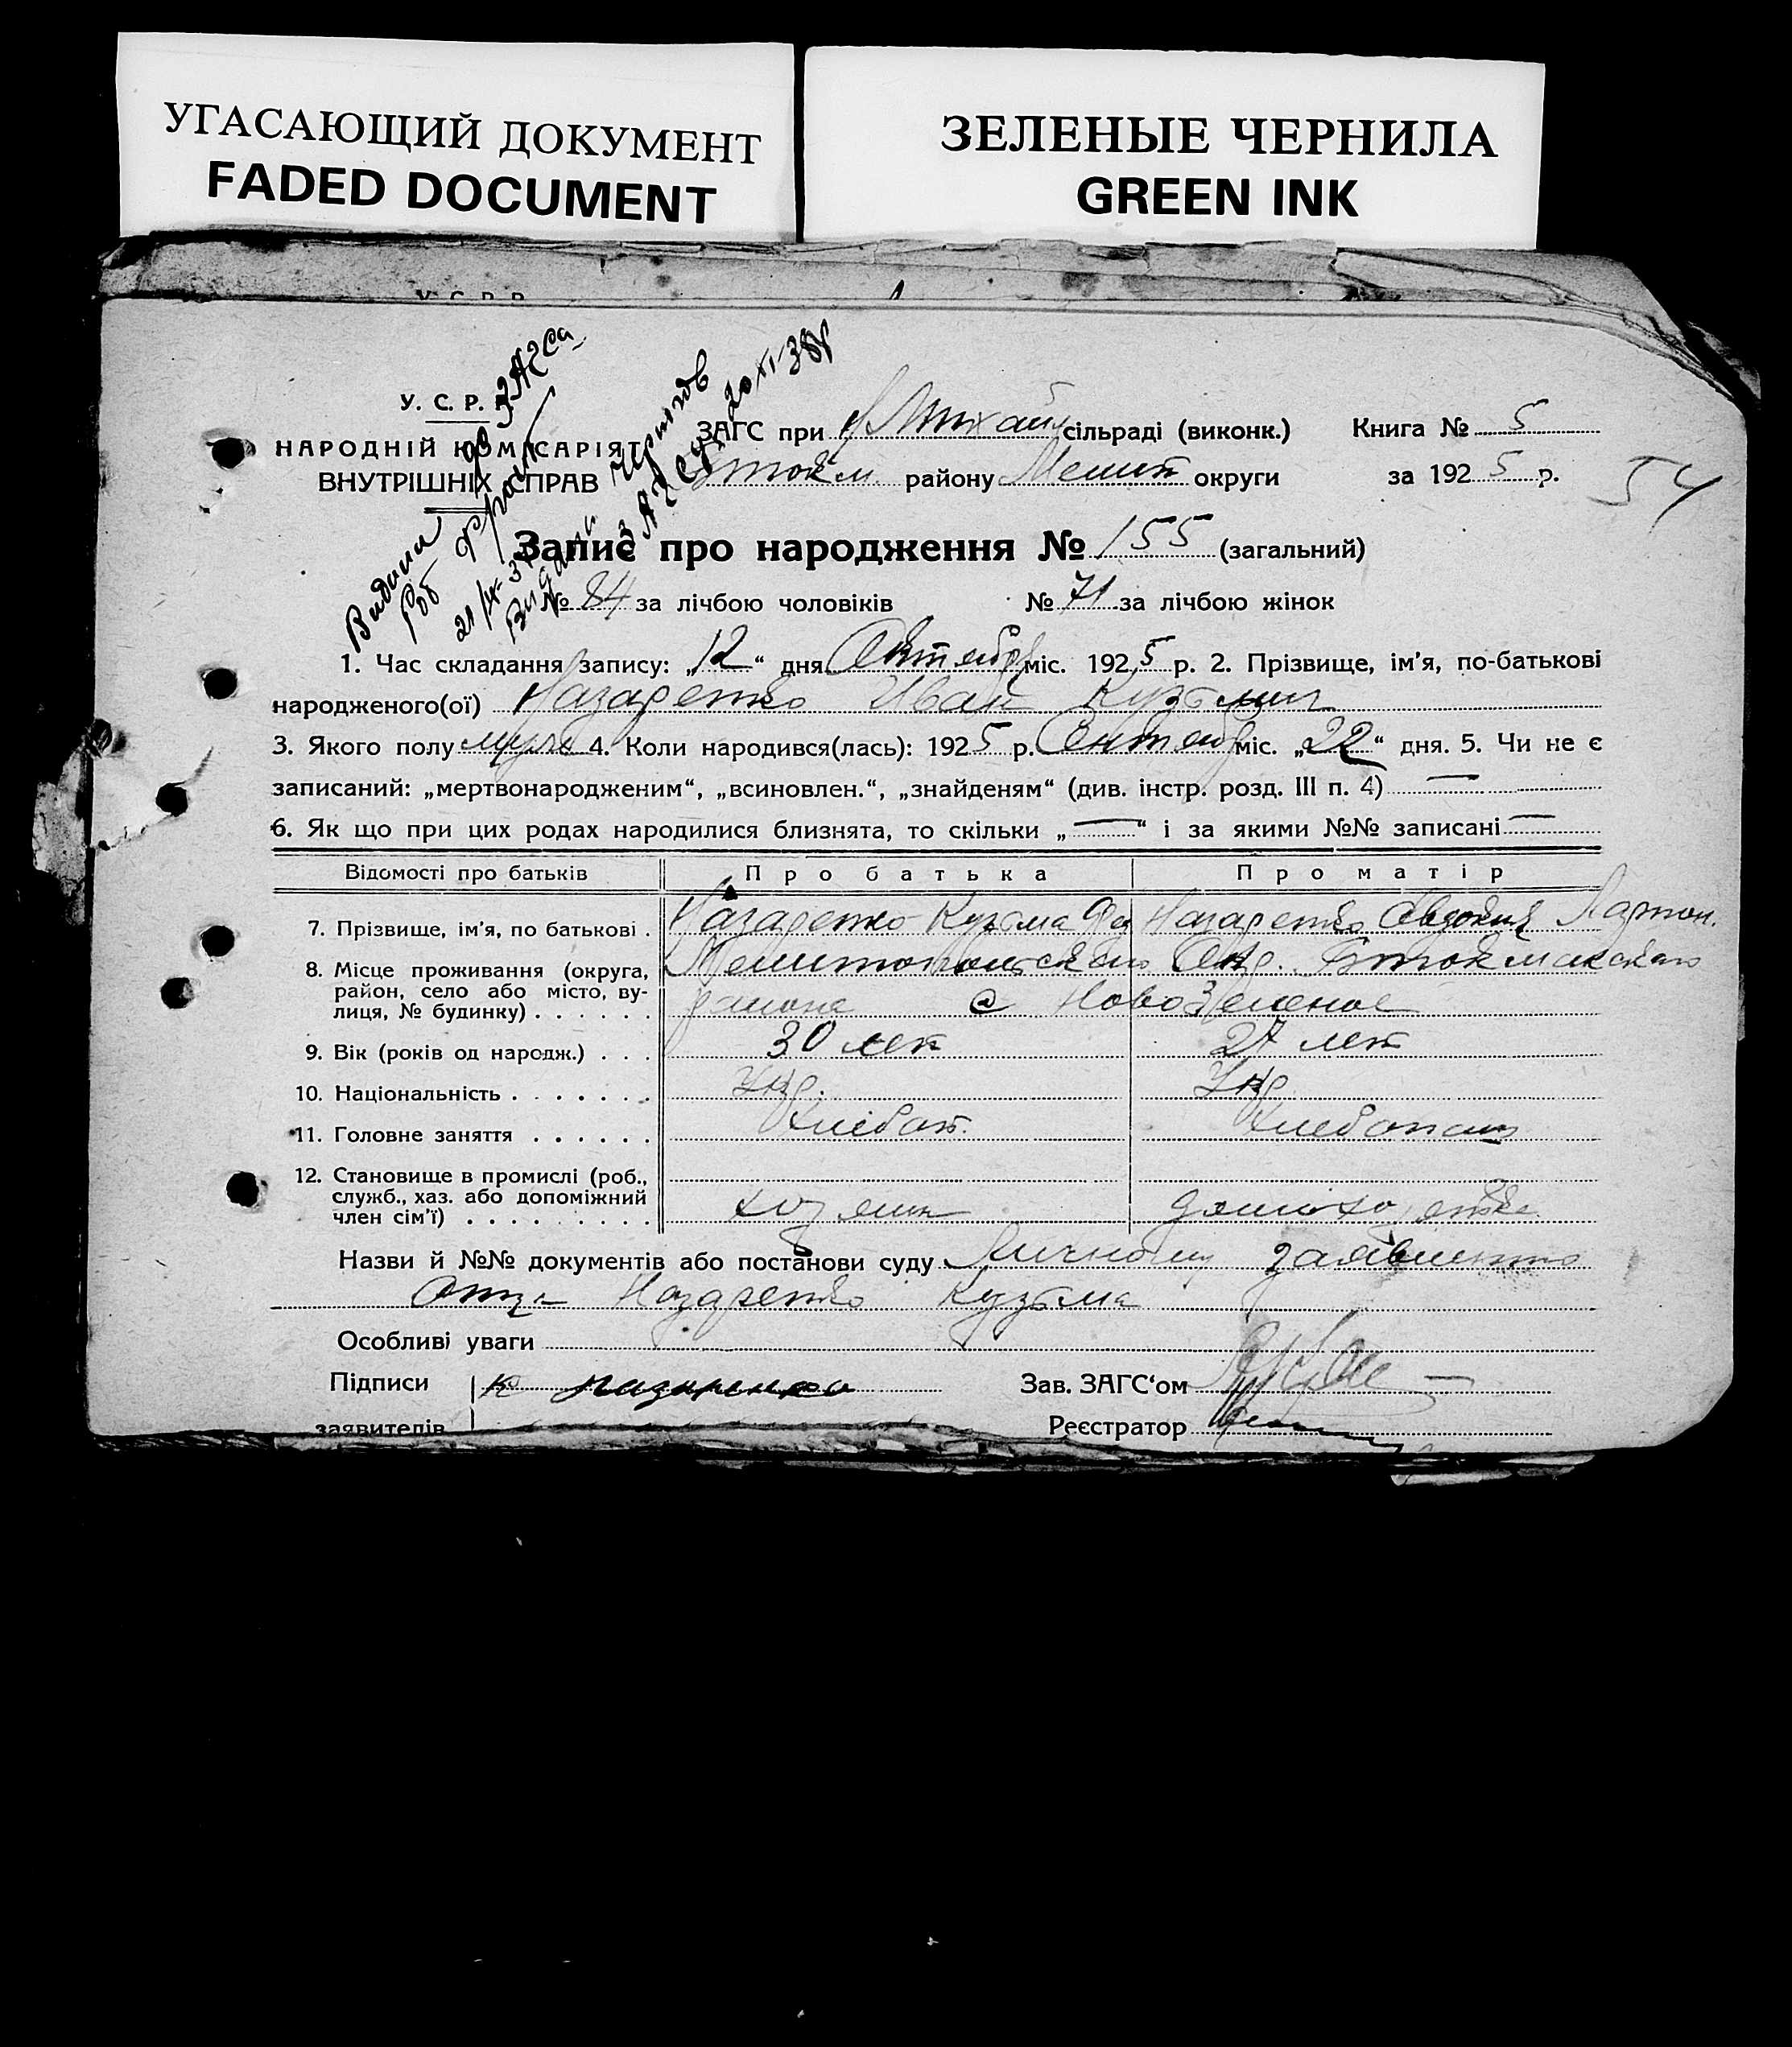 УГАСАЮЩИЙ ДОКУМЕНТ
FADED DOCUMENT
ЗЕЛЕНЫЕ ЧЕРНИЛА
GREEN INK
У. С. Р. Р.
У. С. Р. Р.
НАРОДНІЙ КОМІСАРІЯТ
ВНУТРІШНІХ СПРАВ
ЗАГС при Михайл сільраді (виконк.) Книга № 5
Бтокм. району Мелит округи за 1925 р.
54
Видана
21/4-37
Видана
ЗАГСа
20 XI-38р
Запис про народження № 155 (загальний)
№ 84 за лічбою чоловіків № 71 за лічбою жінок
1. Час складання запису: „12“ дня Октябр міс. 1925 р. 2. Прізвище, ім’я, по-батькові
народженого(ої) Назаренко Иван Кузьмич
3. Якого полу муж 4. Коли народився(лась): 1925 р. Сентябр міс. „22“ дня. 5. Чи не є
записаний: „мертвонародженим“, „всиновлен.“, „знайденям“ (див. інстр. розд. III п. 4) —
6. Як що при цих родах народилися близнята, то скільки „—“ і за якими №№ записані —
Відомості про батьків Про батька Про матір
7. Прізвище, ім’я, по батькові . Назаренко Кузьма Фед Назаренко Евдокия Ларион.
8. Місце проживання (округа, Мелитопольского Окр. Бтокмакского
район, село або місто, ву-
лиця, № будинку) . . . . . . района с Ново Зеленое
9. Вік (років од народж.) . . . 30 лет 27 лет
10. Національність . . . . . . . Укр. Укр
11. Головне заняття . . . . . . Хлебоп. Хлебопаш
12. Становище в промислі (роб.,
служб., хаз. або допоміжний
член сім’ї) . . . . . . . . . хозяин домохозяйка
Назви й №№ документів або постанови суду Личному заявлению
Отца Назаренко Кузьма
Особливі уваги
Підписи К Назаренко Зав. ЗАГС‘ом
заявителів Реєстратор